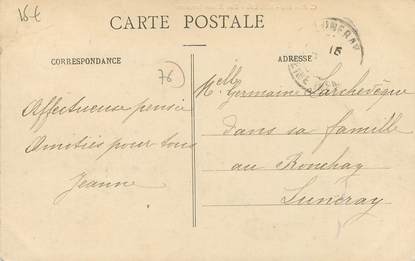 15€
CARTE POSTALE
CORRESPONDANCE
ADRESSE
76
LUNERAY
15
Affectueuse pensée
Amitiés pour tous
Jeanne
Melle Germaine Larchevêque
dans sa famille
au Ronchay
Luneray